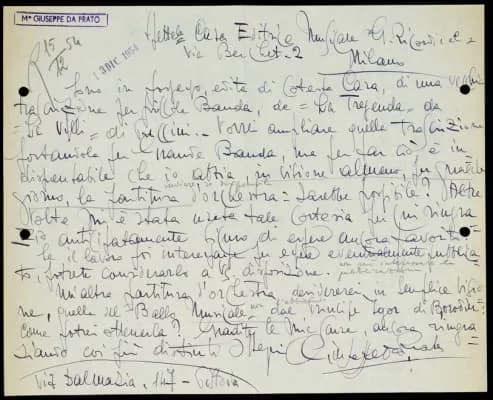 Mº GIUSEPPE DA PRATO
Spettab. Casa Editrice Musicale G. Ricordi e C.
15 54
12
13 DIC. 1954
Via Berchet - 2
Milano
Sono in possesso, edita di Cotesta Casa, di una vecchia
trascrizione per piccola Banda, de = La Tregenda = da
= Le Villi = di Puccini. - Vorrei ampliare quella trascrizione
portandola per Grande Banda, ma per far ciò è in
dispensabile che io abbia, in visione almeno, per qualche
giorno, la partitura d'orchestra = Sarebbe possibile? Altre
volte mi è stata usata tale cortesia per cui ringra
zio anticipatamente sicuro di essere ancora favorito.
Se il lavoro poi interessasse per essere eventualmente pubblica
to, potrete considerarlo a Vs. disposizione.
Un'altra partitura d'orchestra desidererei in semplice visio
ne, quella del = Ballo Musicale = dal Principe Igor di Borodin:
come potrei ottenerla? Gradite le mie scuse, ancora ringra
ziando coi più distinti ossequi Giuseppe Da Prato
Via Dalmazia, 147 - Pistoia